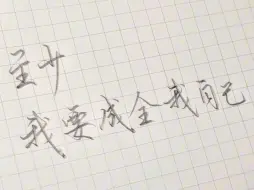 至少
我要成全我自己